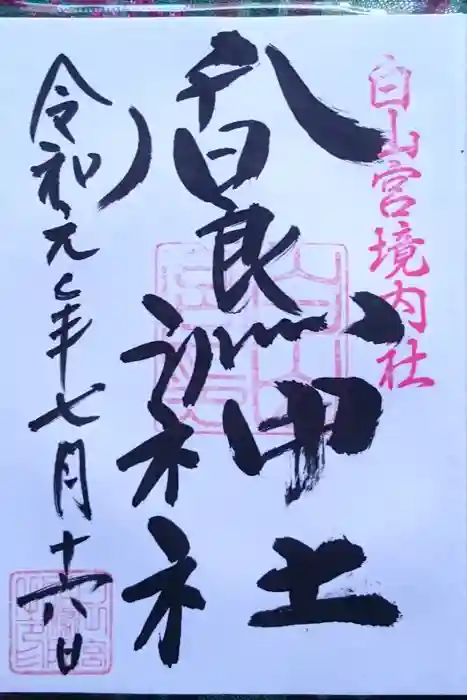 白山宮境内社
香良洲神社
令和元年七月十六日